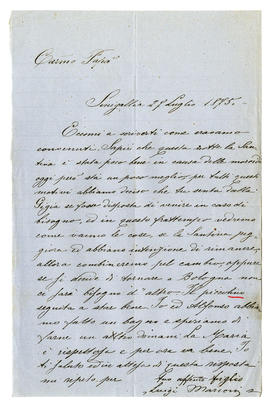 Carmo Papà
Senigallia 29 Luglio 1895.
Eccomi a scriverti come eravamo
convenuti. Sappi che questa notte la
è stata poco bene in causa delle
oggi però sta un poco meglio, per tutti questi
motivi abbiamo deciso che tu senta dalla
Gigia se fosse disposta di venire in caso di
bisogno, ed in questo frattempo vedremo
come vanno le cose, se la Santina peg
giora ed abbiamo intenzione di rimanere,
allora combineremo pel cambio, oppure
se si decide di tornare a Bologna non
ci sarà bisogno d'altro. Il
seguita a stare bene. Io ed Alfonso abbia
mo fatto un bagno e speriamo di
farne un altro domani. La Maria
è e per ora va bene. Io
ti saluto ed in attesa di questa risposta
mi ripeto per
tuo affmo figlio
Luigi Marconi